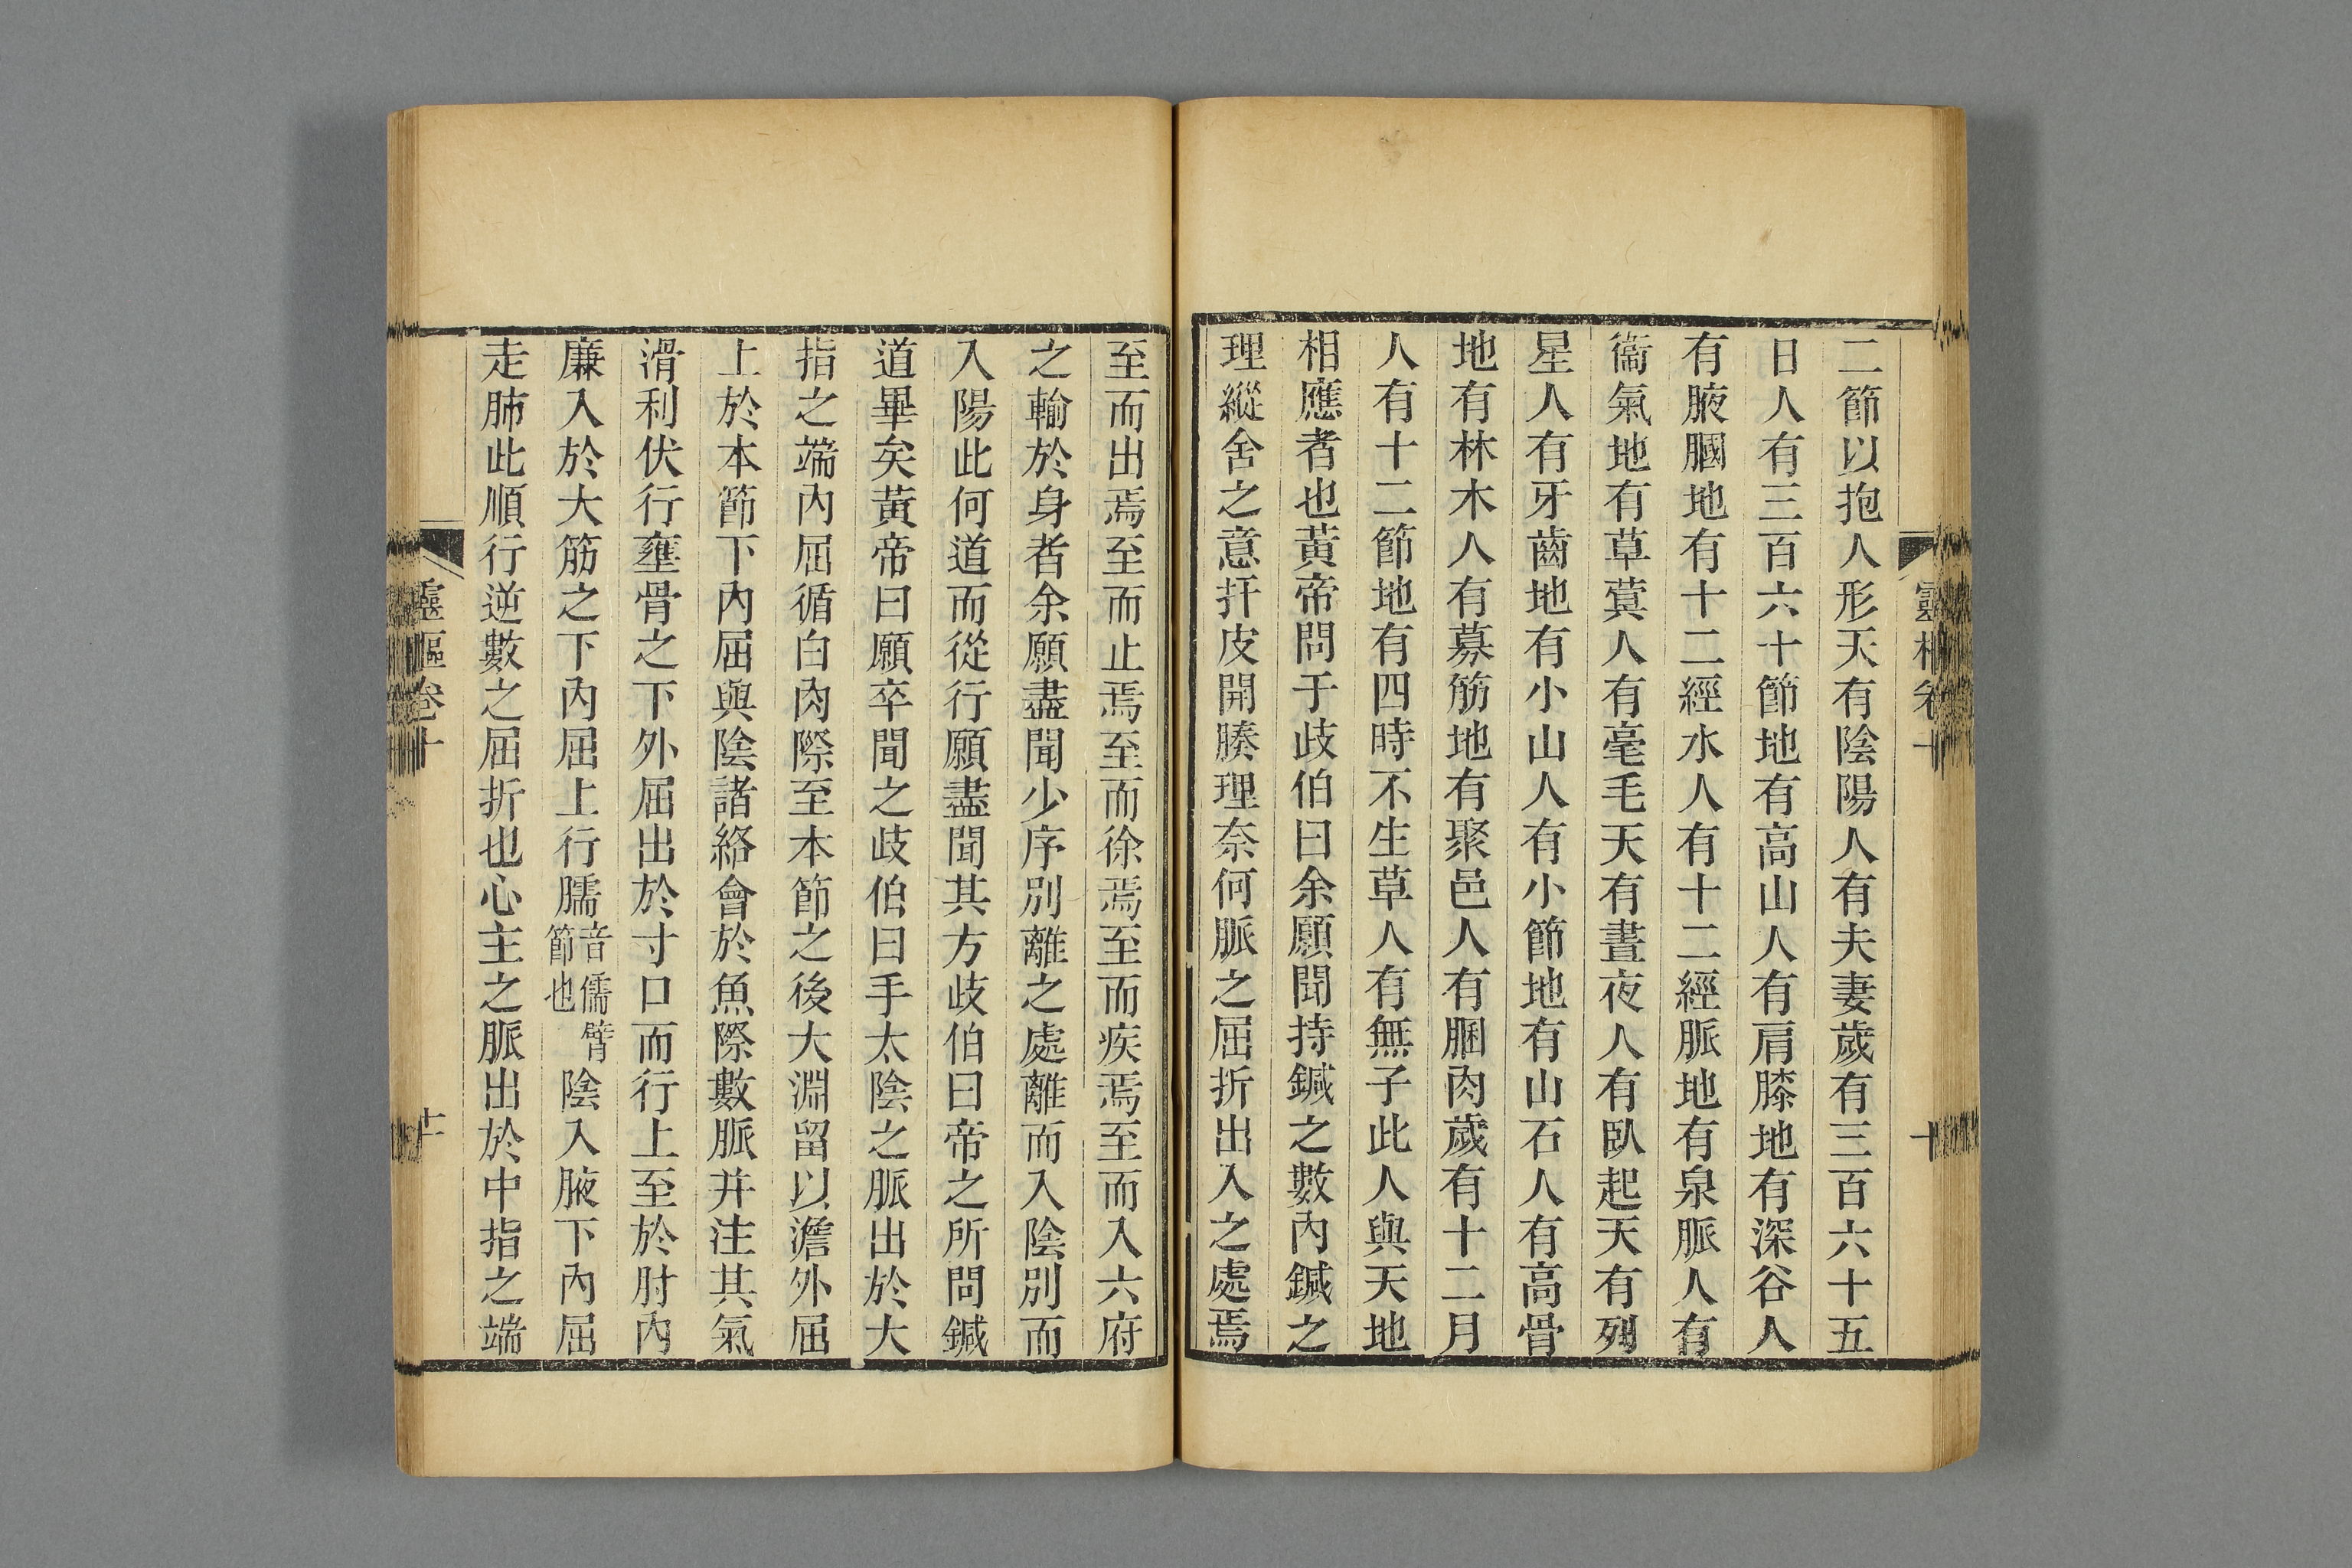 靈樞卷十
十
二節以抱人形天有陰陽人有夫妻歲有三百六十五
日人有三百六十節地有高山人有肩膝地有深谷人
有腋膕地有十二經水人有十二經脈地有泉脈人有
衞氣地有草蓂人有毫毛天有晝夜人有臥起天有列
星人有牙齒地有小山人有小節地有山石人有高骨
地有林木人有募筋地有聚邑人有䐃肉歲有十二月
人有十二節地有四時不生草人有無子此人與天地
相應者也黃帝問于歧伯曰余願聞持鍼之數內鍼之
理縱舍之意扞皮開腠理奈何脈之屈折出入之處焉
至而出焉至而止焉至而徐焉至而疾焉至而入六府
之輸於身者余願盡聞少序別離之處離而入陰別而
入陽此何道而從行願盡聞其方歧伯曰帝之所問鍼
道畢矣黃帝曰願卒聞之歧伯曰手太陰之脈出於大
指之端內屈循白肉際至本節之後大淵留以澹外屈
上於本節下內屈與陰諸絡會於魚際數脈并注其氣
滑利伏行壅骨之下外屈出於寸口而行上至於肘內
廉入於大筋之下內屈上行臑音儒臂節也陰入腋下內屈
走肺此順行逆數之屈折也心主之脈出於中指之端
靈樞卷十
十一